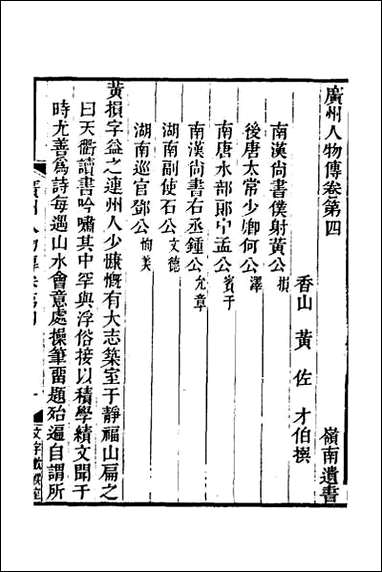 廣州人物傳卷第四
嶺南遺書
香山 黃 佐 才伯撰
南漢尚書僕射黃公損
後唐太常少卿何公澤
南唐水部郎中孟公賓于
南漢尚書右丞鍾公允章
湖南副使石公文德
湖南巡官鄧公恂美
黃損字益之連州人少慷慨有大志築室于靜福山扁之
曰天衢讀書吟嘯其中罕與浮俗接以積學績文聞于
時尤善為詩每遇山水會意處操筆留題殆遍自謂所
廣州人物傳卷第四
一